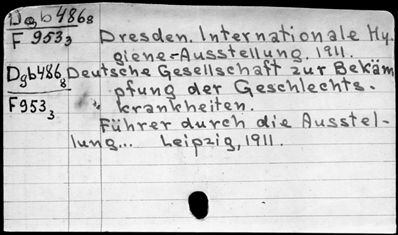 Dgb4868
F 9533
Dresden. Internationale Hy-
giene-Ausstellung, 1911.
Dgb4868
F9533
Deutsche Gesellschaft zur Bekäm
pfung der Geschlechts-
krankheiten.
Führer durch die Ausstel-
lung... Leipzig, 1911.